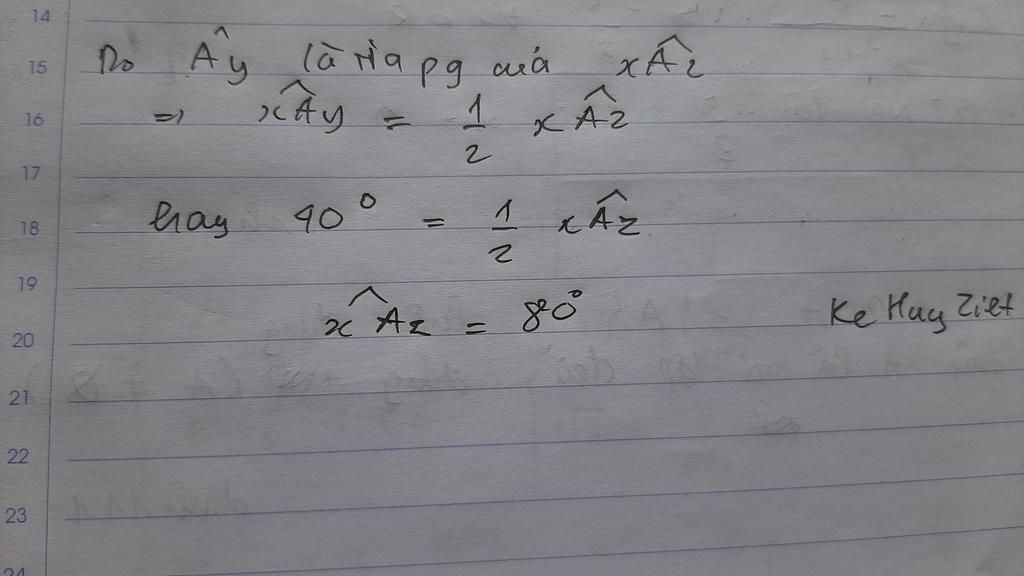 14
15 Do Ây là tia pg của xÂz
16 => xÂy = 1/2 xÂz
17
18 hay 40° = 1/2 xÂz
19
20 xÂz = 80° Ke Huy Ziet
21
22
23
24